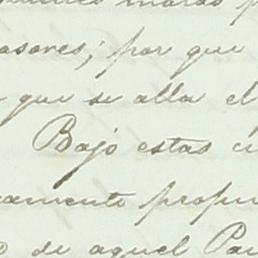 asores; por que
que se alla el
Bajo estas
amente propu
de aquel Par